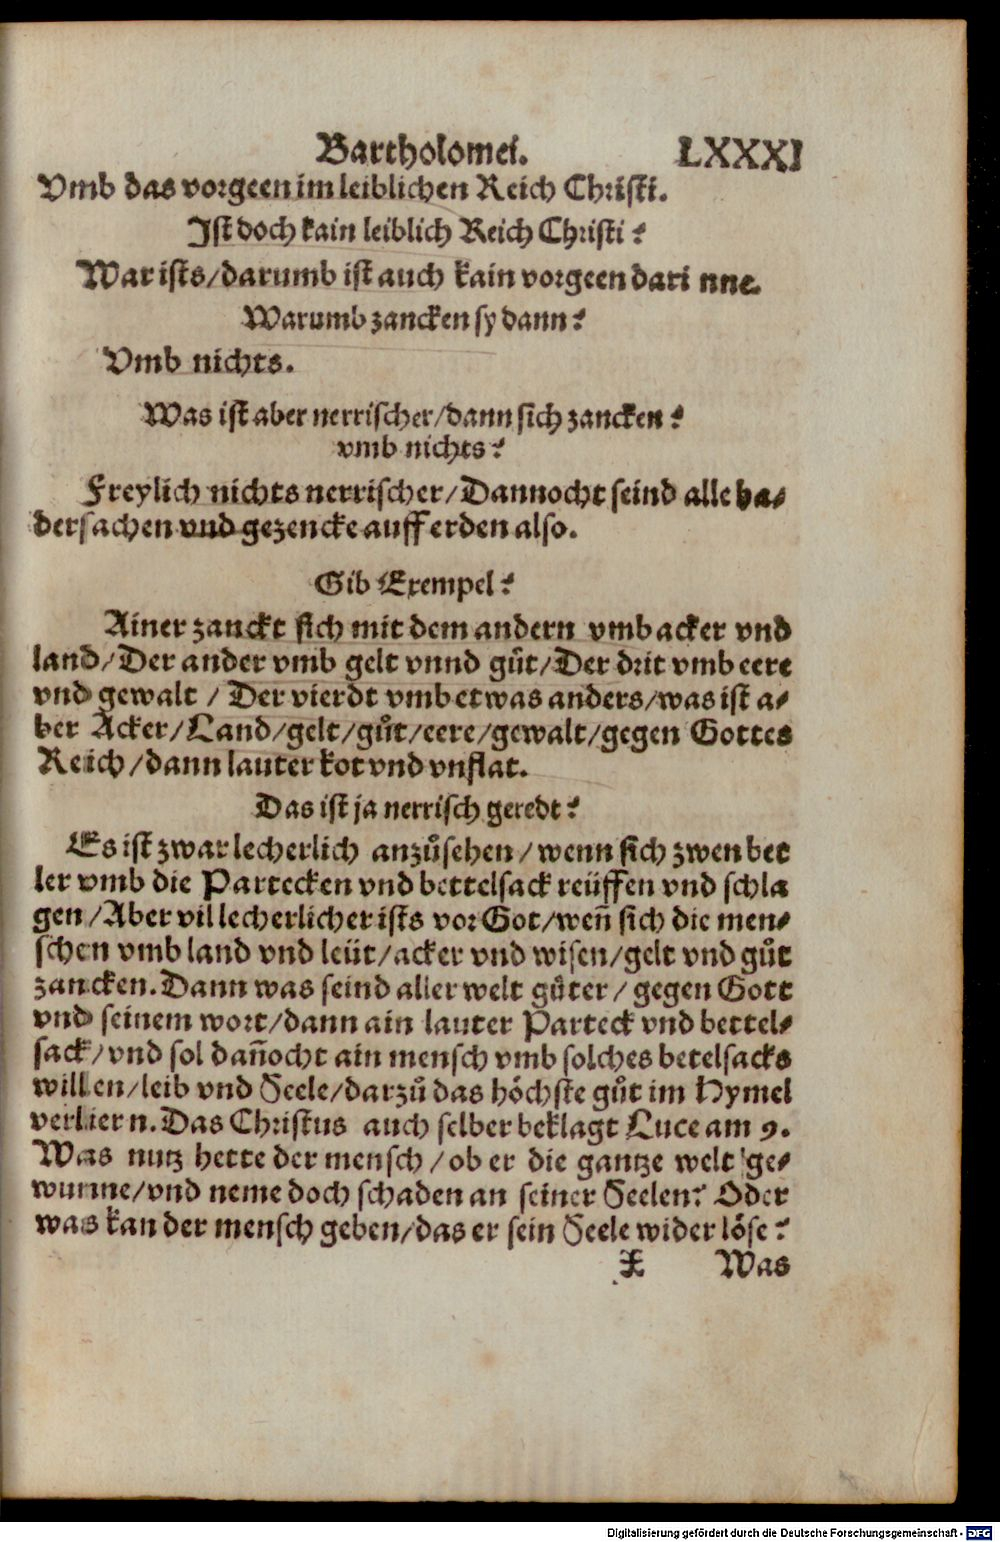 Bartholomei. LXXXI
Vmb das vorgeen im leiblichen Reich Christi.
Ist doch kain leiblich Reich Christi?
War ists/darumb ist auch kain vorgeen dari nne.
Warumb zancken sy dann?
Vmb nichts.
Was ist aber nerrischer/dann sich zancken?
vmb nichts?
Freylich nichts nerrischer/Dannocht seind alle ha-
dersachen vnd gezencke auff erden also.
Gib Exempel?
Ainer zanckt sich mit dem andern vmb acker vnd
land/Der ander vmb gelt vnnd guͤt/Der drit vmb eere
vnd gewalt / Der vierdt vmb etwas anders/was ist a-
ber Acker/Land/gelt/guͦt/eere/gewalt/gegen Gottes
Reich/dann lauter kot vnd vnflat.
Das ist ja nerrisch geredt?
Es ist zwar lecherlich anzuͦsehen/wenn sich zwen bet
ler vmb die Partecken vnd bettelsack reüffen vnd schla
gen/Aber vil lecherlicher ists vor Got/weñ sich die men-
schen vmb land vnd leüt/acker vnd wisen/gelt vnd guͦt
zancken. Dann was seind aller welt guͤter/ gegen Gott
vnd seinem wort/dann ain lauter Parteck vnd bettel-
sack/vnd sol dañocht ain mensch vmb solches betelsacks
willen/leib vnd Seele/darzuͦ das hoͤchste guͦt im Hymel
verliern. Das Christus auch selber beklagt Luce am 9.
Was nutz hette der mensch/ob er die gantze welt ge-
wunne/vnd neme doch schaden an seiner Seelen? Oder
was kan der mensch geben/das er sein Seele wider loͤse?
X Was
Digitalisierung gefördert durch die Deutsche Forschungsgemeinschaft - DFG